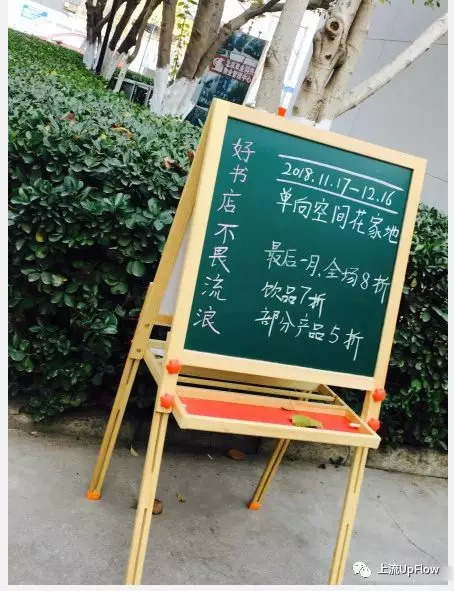 好书店不畏流浪
2018.11.17-12.16
单向空间花家地
最后一月,全场8折
饮品7折
部分产品5折
上流UpFlow